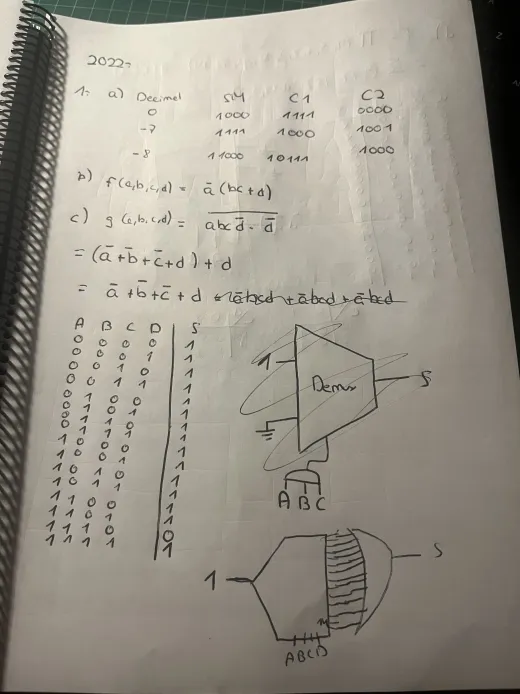 2022:
1. a) Decimal SM C1 C2
0 1000 1111 0000
-7 1111 1000 1001
-8 11000 10111 1000
b) f(a,b,c,d) = a̅ (bc + d)
c) g(a,b,c,d) = \overline{abc d̅ · d̅}
= (a̅ + b̅ + c̅ + d) + d
= a̅ + b̅ + c̅ + d
A B C D S
0 0 0 0 1
0 0 0 1 1
0 0 1 0 1
0 0 1 1 1
0 1 0 0 1
0 1 0 1 1
0 1 1 0 1
0 1 1 1 1
1 0 0 0 1
1 0 0 1 1
1 0 1 0 1
1 0 1 1 1
1 1 0 0 1
1 1 0 1 1
1 1 1 0 0
1 1 1 1 1
1 Demux S
A B C
1 S
A B C D